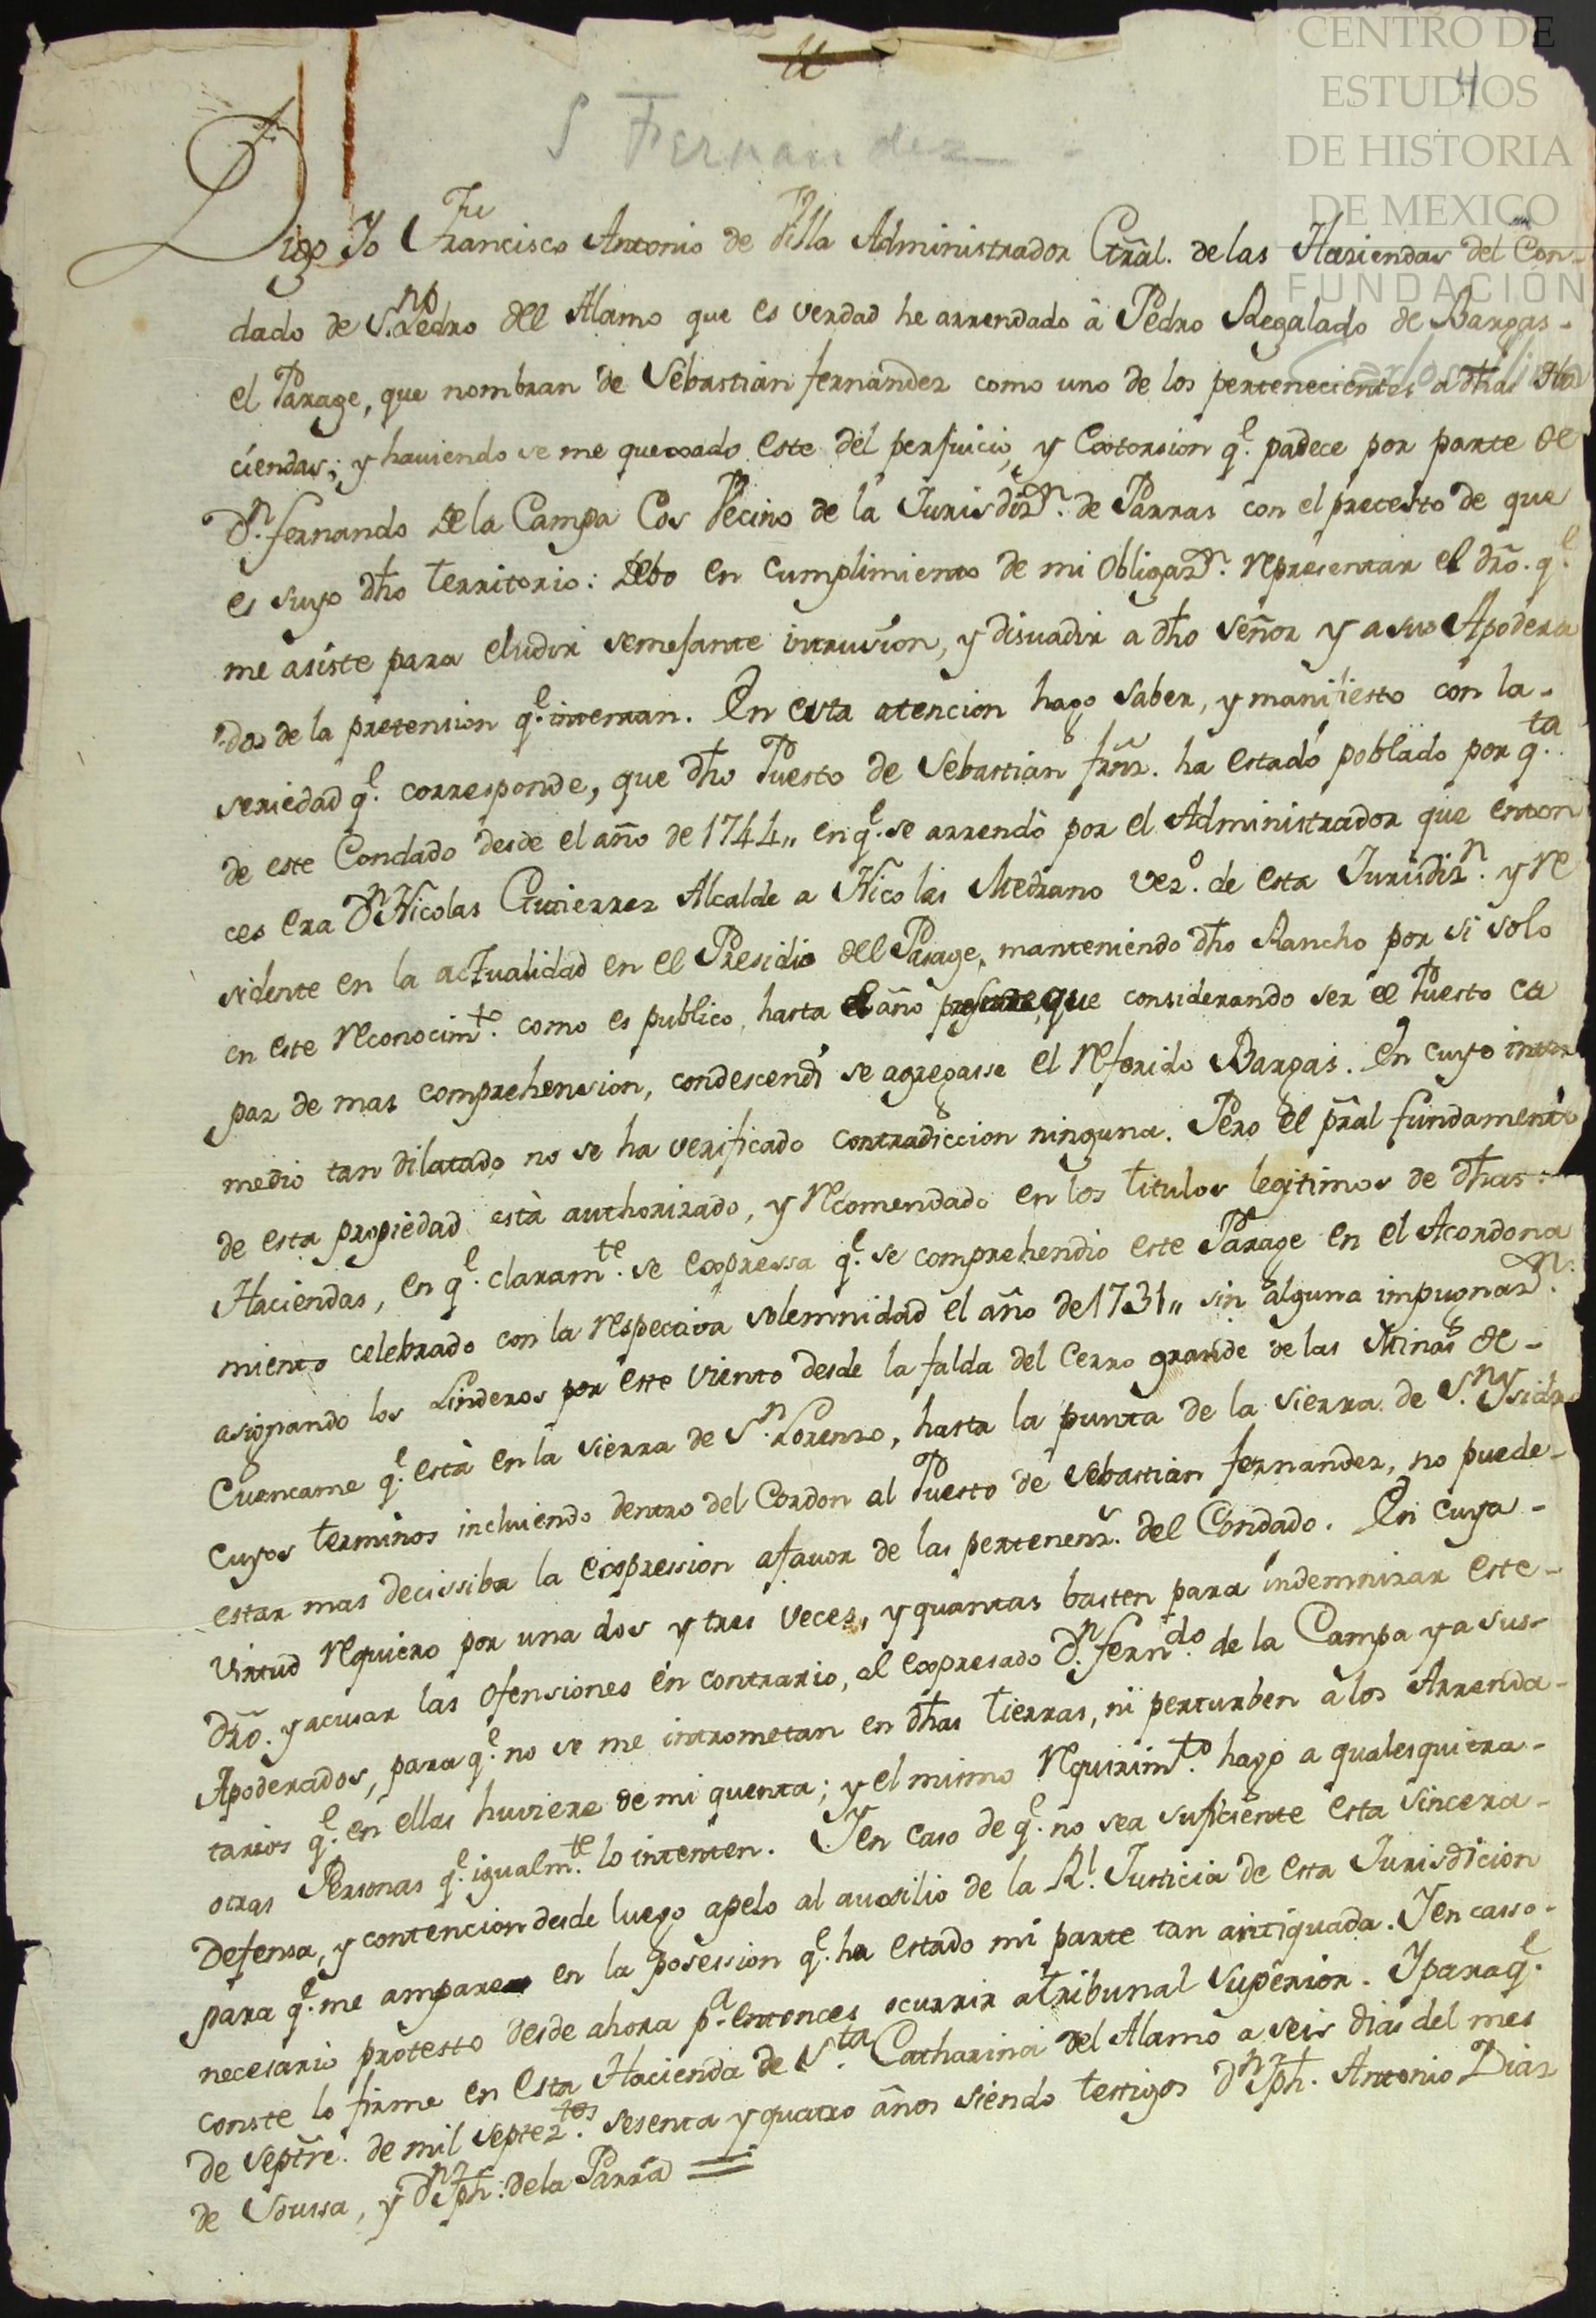 CENTRO DE
ESTUDIOS
DE HISTORIA
DE MEXICO
FUNDACIÓN
Carlos Slim
4
S Fernandez
Digo Yo Francisco Antonio de Villa Administrador Gral. de las Haziendas del Con-
dado de S.n Pedro del Alamo que es verdad he arrendado â Pedro Regalado de Bargas-
el Parage, que nombran de Sebastian fernandez como uno de los pertenecientes a dhas Ha
ciendas; y haviendo se me quexado este del perjuicio, y Extorsion q.e padece por parte de
D.n fernando de la Campa Cos Vecino de la Jurisdiz.n de Parras con el pretesto de que
es suyo dho territorio: Debo en cumplimiento de mi Obligaz.n representar el dro. q.e
me asiste para eludir semejante intrusion, y disuadir a dho Señor y a sus Apodera
dos de la pretension q.e intentan. En esta atencion hago saber, y manifiesto con la-
seriedad q.e corresponde, que dho Puesto de Sebastian frnz. ha estado poblado por q.ta
de este Condado desde el año de 1744,, en q.e se arrendò por el Administrador que enton
ces era D.n Nicolas Gutierrez Alcalde a Nicolas Medrano vez.o de esta Jurisdiz.n y re
sidente en la actualidad en el Presidio del Pasage, manteniendo dho Rancho por si solo
en este reconocim.to como es publico, hasta el año presente, que considerando ser el Puesto ca
paz de mas comprehension, condescendì se agregasse el referido Bargas. En cuyo inter
medio tan dilatado no se ha verificado contradiccion ninguna. Pero el pral fundamento
de esta propiedad està authorizado, y recomendado en los titulos legitimos de dhas-
Haciendas, en q.e claram.te se expressa q.e se comprehendio este Parage en el Acordona
miento celebrado con la respectiva solemnidad el año de 1731,, sin alguna impugnaz.n
asignando los Linderos por este viento desde la falda del Cerro grande de las Minas de-
Cuencame q.e està en la sierra de S.n Lorenzo, hasta la punta de la sierra de S.n Ysidro
Cuyos terminos incluiendo dentro del Cordon al Puesto de Sebastian fernandez, no puede-
estar mas decissiba la expression a favor de las pertenenz.s del Condado. En cuya-
virtud requiero por una dos y tres veces, y quantas basten para indemnizar este-
dro. y acusar las ofensiones en contrario, al expresado D.n fern.do de la Campa y a sus-
Apoderados, para q.e no se me intrometan en dhas tierras, ni perturben a los Arrenda-
tarios q.e en ellas huviere de mi quenta; y el mismo requirim.to hago a qualesquiera-
otras Personas q.e igualm.te lo intenten. Y en caso de q.e no sea suficiente esta sincera-
Defensa, y contencion desde luego apelo al auxilio de la R.l Justicia de esta Jurisdicion
para q.e me ampare en la posession q.e ha estado mi parte tan antiquada. Y en casso-
necesario protesto desde ahora p.a entonces ocurrir a tribunal Superior. Y para q.e
conste lo firme en esta Hacienda de S.ta Catharina del Alamo a seis dias del mes
de Septre. de mil Septez.tos sesenta y quatro años siendo testigos D.n Jph. Antonio Diaz
de Soussa, y D.n Jph. de la Parra =